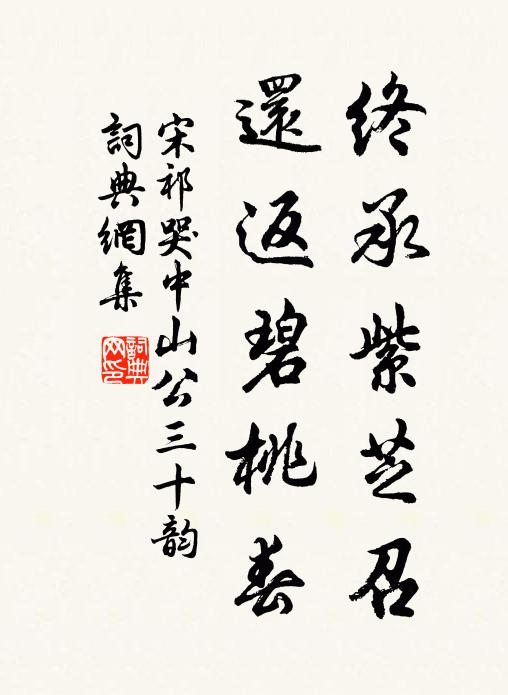 終承紫芝召
還返碧桃春
宋祁哭中山公三十韵
詞典網集
詞典網印